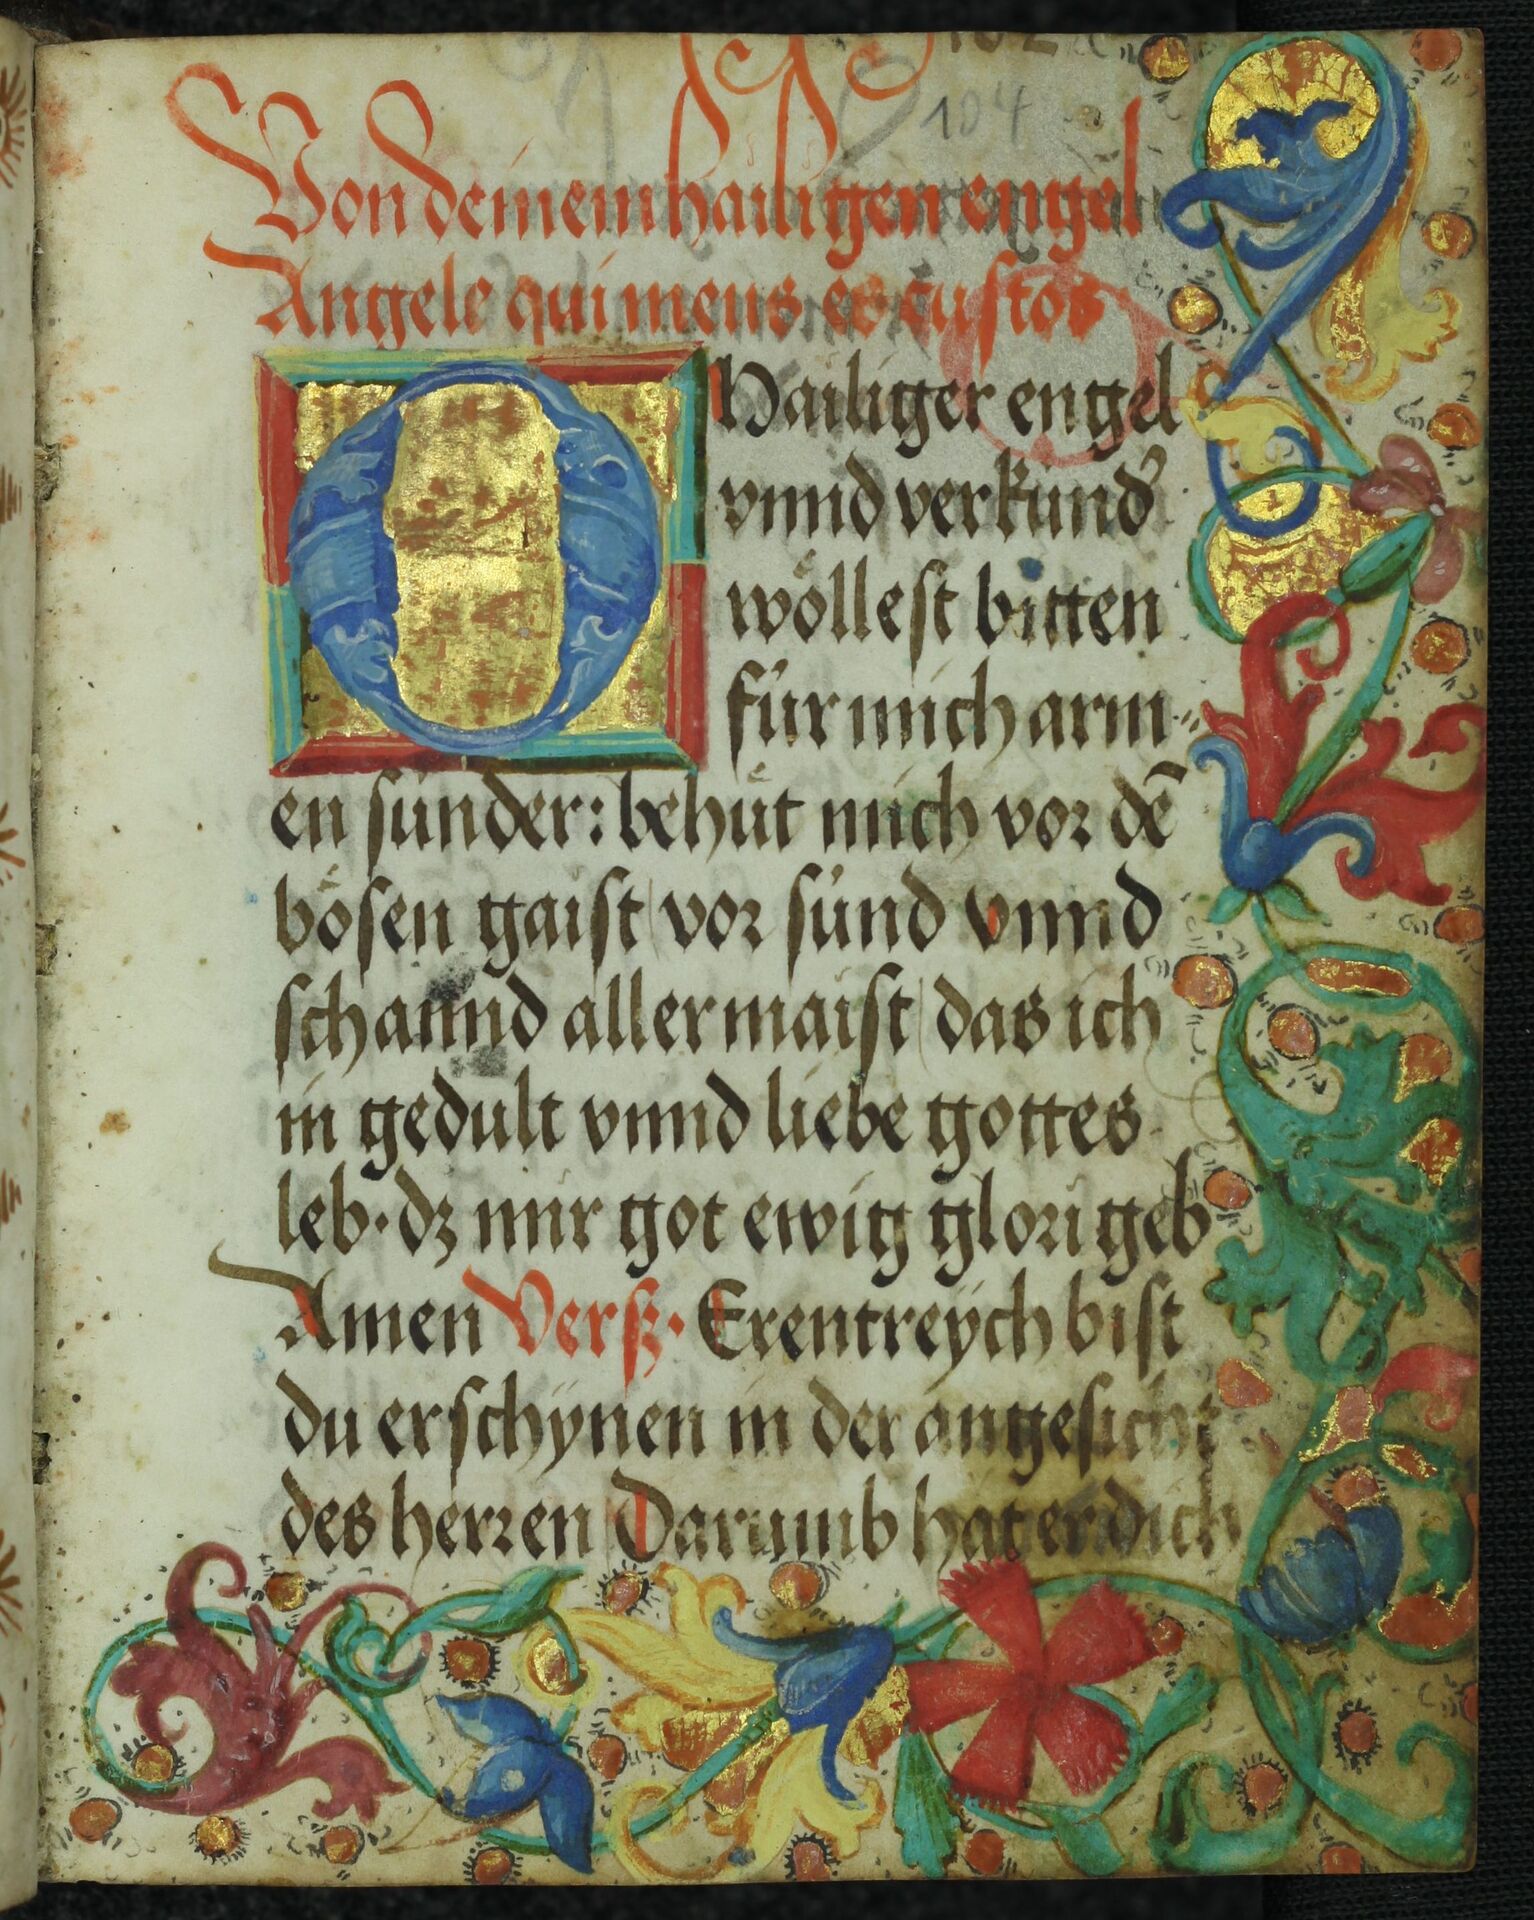 104
Von deinem hailigen engel
Angele qui meus es custos
O Hailiger engel
vnnd verkünd'
wöllest bitten
für mich arm=
en sünder: behüt mich vor dē
bösen gaist / vor sünd vnnd
schannd aller maist / das ich
in gedult vnnd liebe gottes
leb · dz mir got ewig glori geb
Amen Verß · Erentreÿch bist
du erschÿnen in der angesicht
des herren Darumb hat er dich